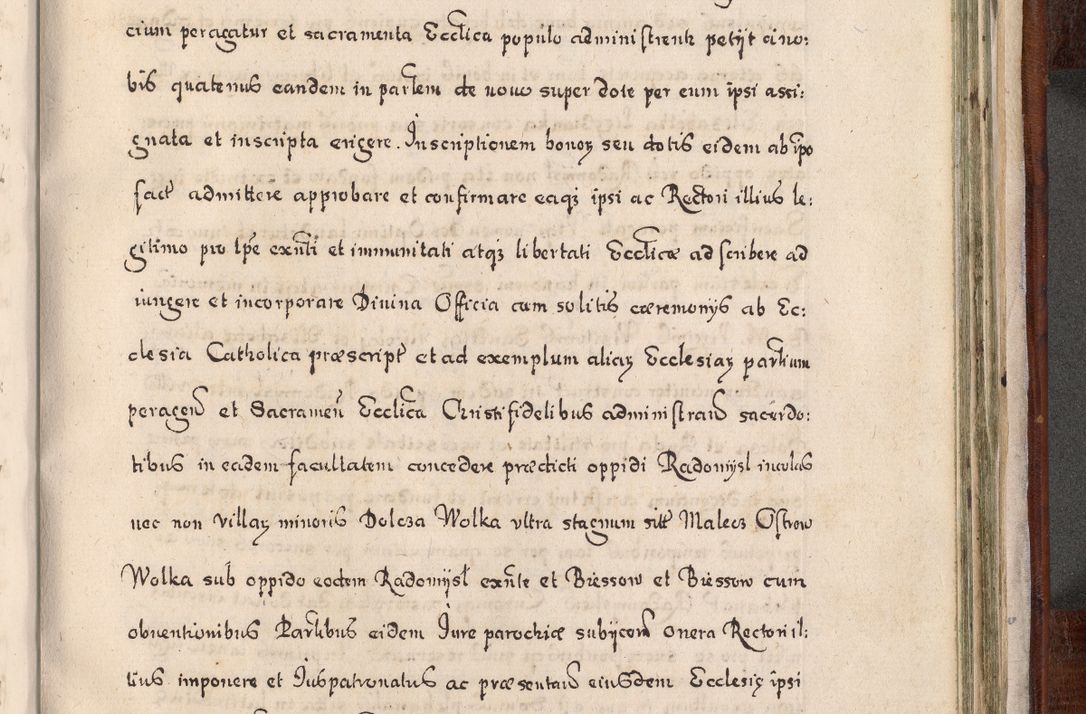 cium peragatur et sacramenta Ecclĩca populo administrent petijt a no:
bis quatenus eandem in parĩem de nouo super dote per eum ipsi assi:
gnata et inscripta erigere. Inscriptionem bonoꝝ seu dotis eidem ab ipo
fact admittere approbare et confirmare eaqꝫ ipsi ac Rectori illius le:
gitimo pro tpe exñti et immunitati atqꝫ libertati Ecclĩcæ ad scribere ad
iungere et incorporare Diuina Officia cum solitis cæremonijs ab Ec:
clesia Catholica præscript et ad exemplum aliaꝝ Ecclesiaꝝ parĩium
peragen et Sacramen Ecclĩca Christi fidelibus administran sacerdo:
tibus in eadem facultatem concedere prædicti oppidi Radomijsl incolas
nec non villaꝝ minoris Dolcza Wolka vltra stagnum sitt Malecz Ostrow
Wolka sub oppido eodem Radomijsl exñte et Bressow et Bressow cum
obuentionibus Parĩibus eidem Iure parochiæ subijcere onera Rectori il:
lius imponere et Iuspatronatus ac præsentan eiusdem Ecclesię ipsi